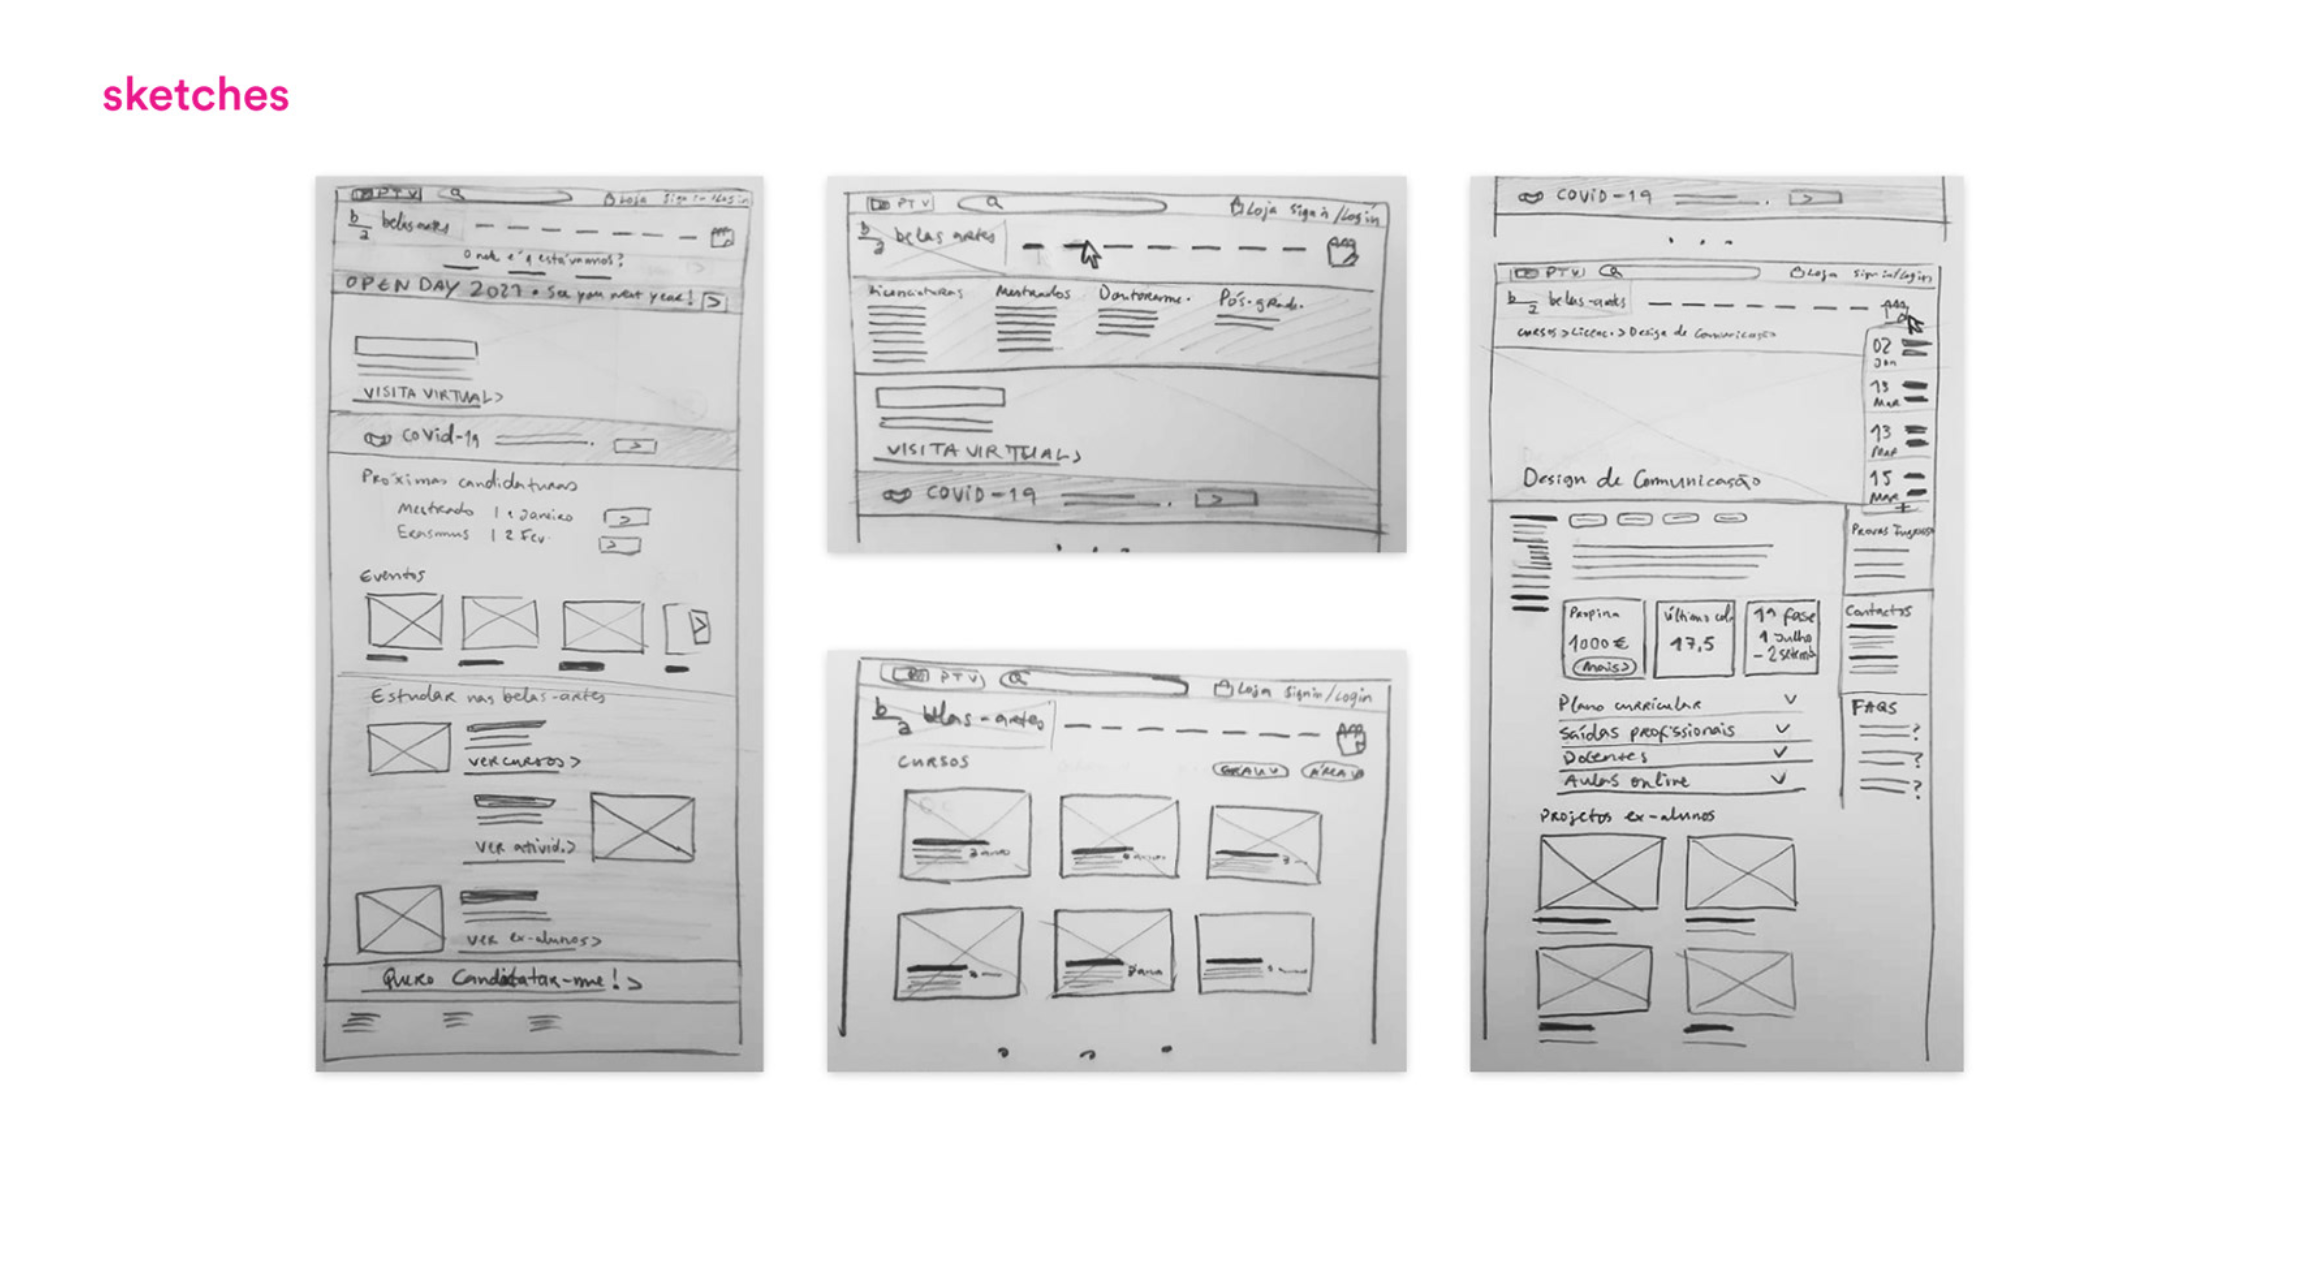 sketches
PT V
Loja Sign in/Login
b/a belas-artes
Onde é q estávamos?
OPEN DAY 2021 • See you next year! >
VISITA VIRTUAL >
Covid-19 . >
Próximas candidaturas
Mestrado | 1 Janeiro >
Erasmus | 2 Fev. >
Eventos
>
Estudar nas belas-artes
ver cursos >
ver ativid. >
ver ex-alunos >
Quero Candidatar-me! >
PT V Loja Sign in/Login
b/a belas artes
Licenciaturas Mestrados Doutorame. Pós-grad.
VISITA VIRTUAL >
COVID-19 . >
PT V Loja Signin/Login
b/a belas-artes
CURSOS GRAU V ÁREA V
COVID-19 . >
PT V Loja Sign in/Login
b/a belas-artes
cursos > Licenc. > Design de Comunicação
02
Jan
13
Mar
13
Mar
15
Mar
+
Design de Comunicação
Provas Ingresso
Propina
1000 €
mais >
Último col.
17,5
1ª fase
1 Julho
- 2 setemb
Contactos
Plano curricular
Saídas profissionais
Docentes
Aulas online
FAQS
?
?
?
Projetos ex-alunos